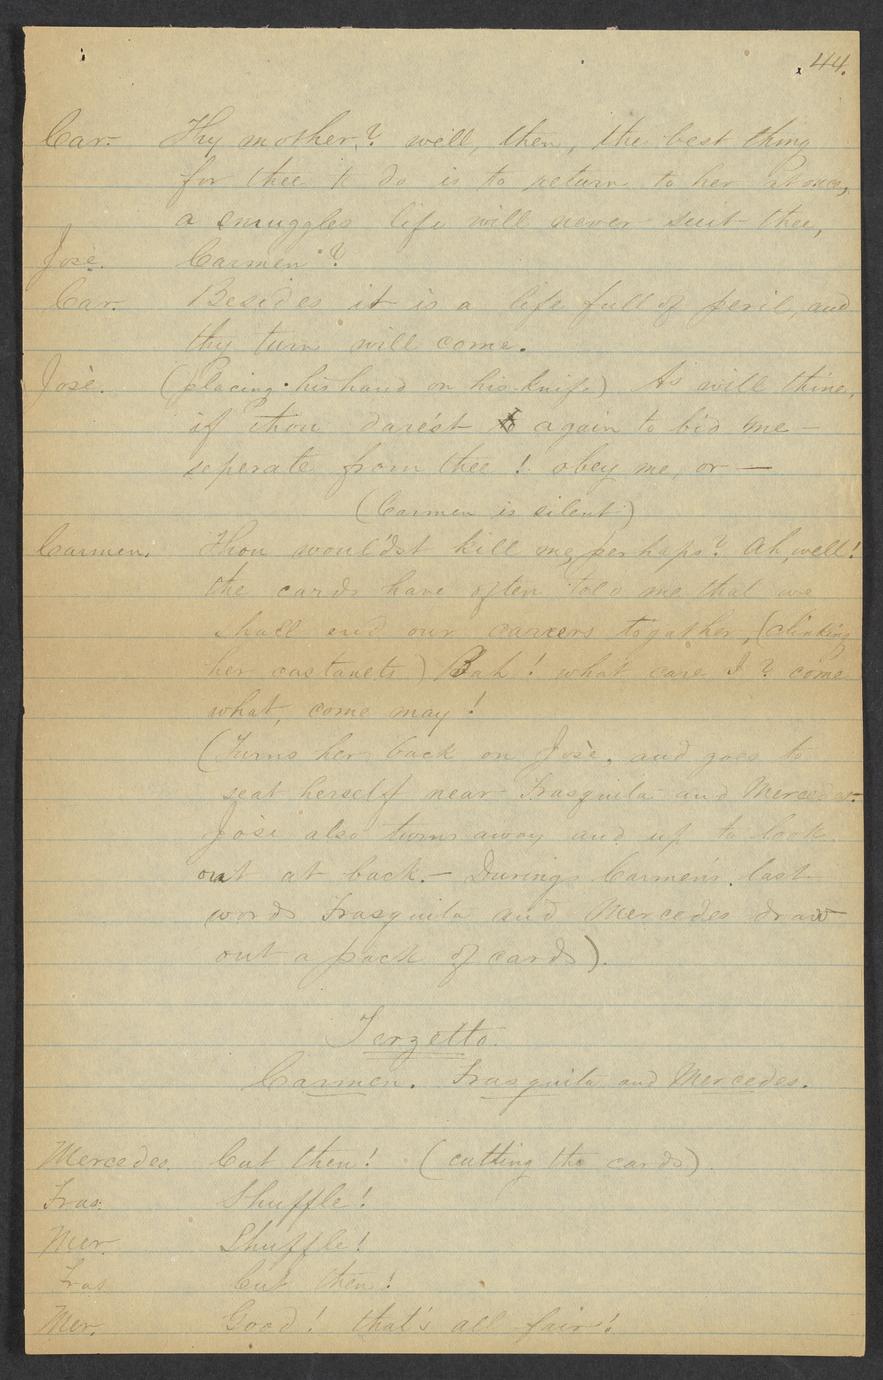 44.
Car. Thy mother? well, then, the best thing
for thee to do is to return to her at once,
a smuggles life will never suit thee,
José. Carmen?
Car. Besides it is a life full of peril, and
thy turn will come.
Josè. (placing his hand on his knife) As will thine,
if thou dare'st again to bid me -
seperate from thee! obey me, or —
(Carmen is silent)
Carmen. Thou would'st kill me, perhaps? Ah, well!
the cards have often told me that we
shall end our careers togather, (clinking
her castanets) Bah! what care I? come
what, come may!
(Turns her back on Josè, and goes to
seat herself near Frasquita and Mercedes.
Josè also turns away and up to look
out at back. — During Carmen's last
words Frasquita and Mercedes draw
out a pack of cards).
Terzetto.
Carmen. Frasquita and Mercedes.
Mercedes. Cut then! (cutting the cards).
Fras. Shuffle!
Mer. Shuffle!
Fras Cut then!
Mer. Good! that's all fair!